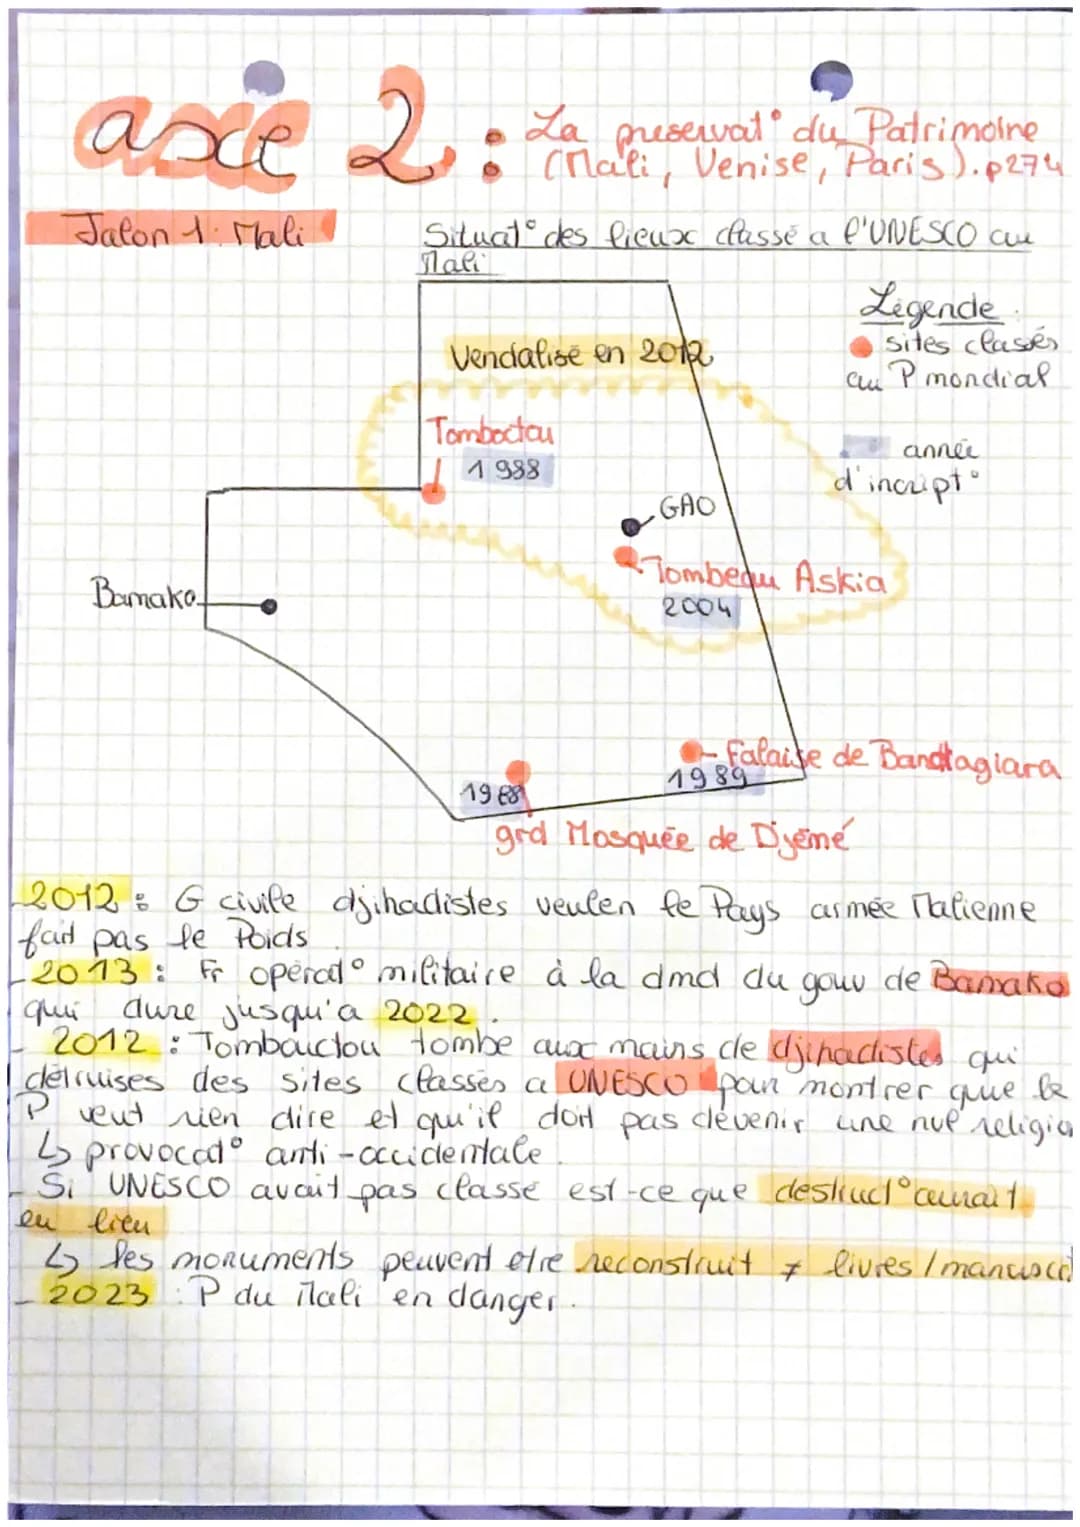 axe 2 : La preservat° du Patrimoine
(Mali, Venise, Paris). p274
Jalon 1: Mali
Situat° des lieux classé a l'UNESCO au
Mali
Légende :
sites classés
au P mondial
année
d'incript°
Vendalisé en 2012
Tomboctou
1988
GAO
Tombeau Askia
2004
Bamako
Falaise de Bandiagiara
1989
1988
grd Mosquée de Djéné
- 2012 : G civile djihadistes veulen le Pays armée Malienne
fait pas le Poids.
- 2013 : Fr operat° militaire à la dmd du gouv de Bamako
qui dure jusqu'a 2022.
- 2012 : Tombouctou tombe aux mains de djihadistes qui
détruises des sites classés a UNESCO pour montrer que le
P veut rien dire et qu'il doit pas devenir une nvl religion
↳ provocat° anti-occidentale.
- Si UNESCO avait pas classé est-ce que destruct° aurait
eu lieu
↳ les monuments peuvent etre reconstruit ≠ livres / manuscrit
- 2023 : P du Mali en danger.